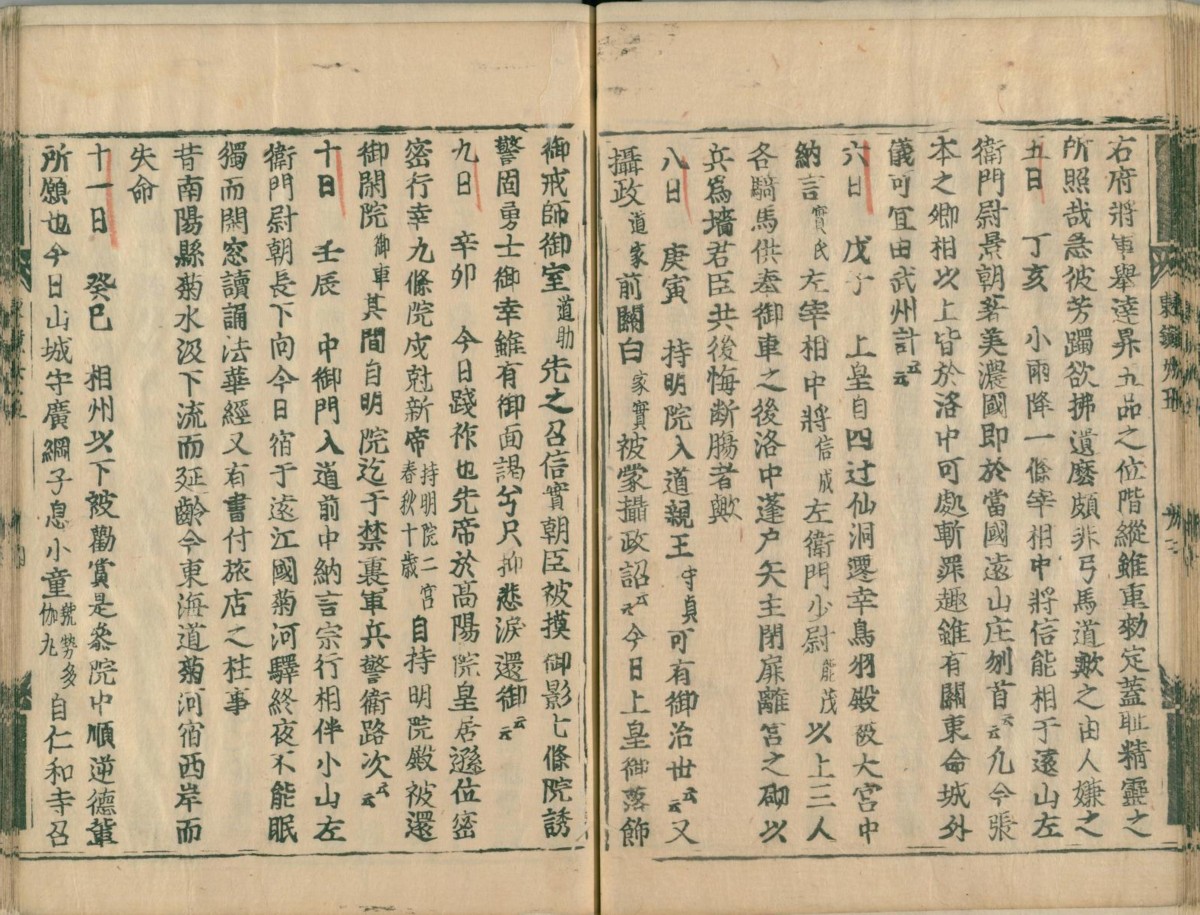 右府將軍舉達昇五品之位階縱雖重勅定蓋耻精靈之
所照哉忽彼芳躅欲拂遺塵頗非弓馬道歟之由人嫌之
五日　丁亥　小雨降一條宰相中將信能相于遠山左
衛門尉景朝著美濃國即於當國遠山庄刎首云云凡今張
本之卿相以上皆於洛中可處斬罪趣雖有關東命城外
儀可宜由武州計云云
六日　戊子　上皇自四辻仙洞遷幸鳥羽殿大宮中
納言實氏左宰相中將信成左衛門少尉能茂以上三人
各騎馬供奉御車之後洛中蓬戶失主閉扉離宮之砌以
兵爲墻君臣共後悔斷膓者歟
八日　庚寅　持明院入道親王守貞可有御治世云云又
攝政道家前關白家實被蒙攝政詔云云今日上皇御落飾
御戒師御室道助先之召信實朝臣被摸御影七條院誘
警固勇士御幸雖有御面謁兮只抑悲淚還御云云
九日　辛卯　今日踐祚也先帝於高陽院皇居遜位密
密行幸九條院戍尅新帝持明院二宮春秋十歲自持明院殿被還
御閑院御車其間自明院迄于禁裏軍兵警衛路次云云
十日　壬辰　中御門入道前中納言宗行相伴小山左
衛門尉朝長下向今日宿于遠江國菊河驛終夜不能眠
獨而開窓讀誦法華經又有書付旅店之柱事
昔南陽縣菊水汲下流而延齡今東海道菊河宿西岸而
失命
十一日　癸巳　相州以下被勸賞是叅院中順逆德輩
所願也今日山城守廣綱子息小童號勢多伽丸自仁和寺召